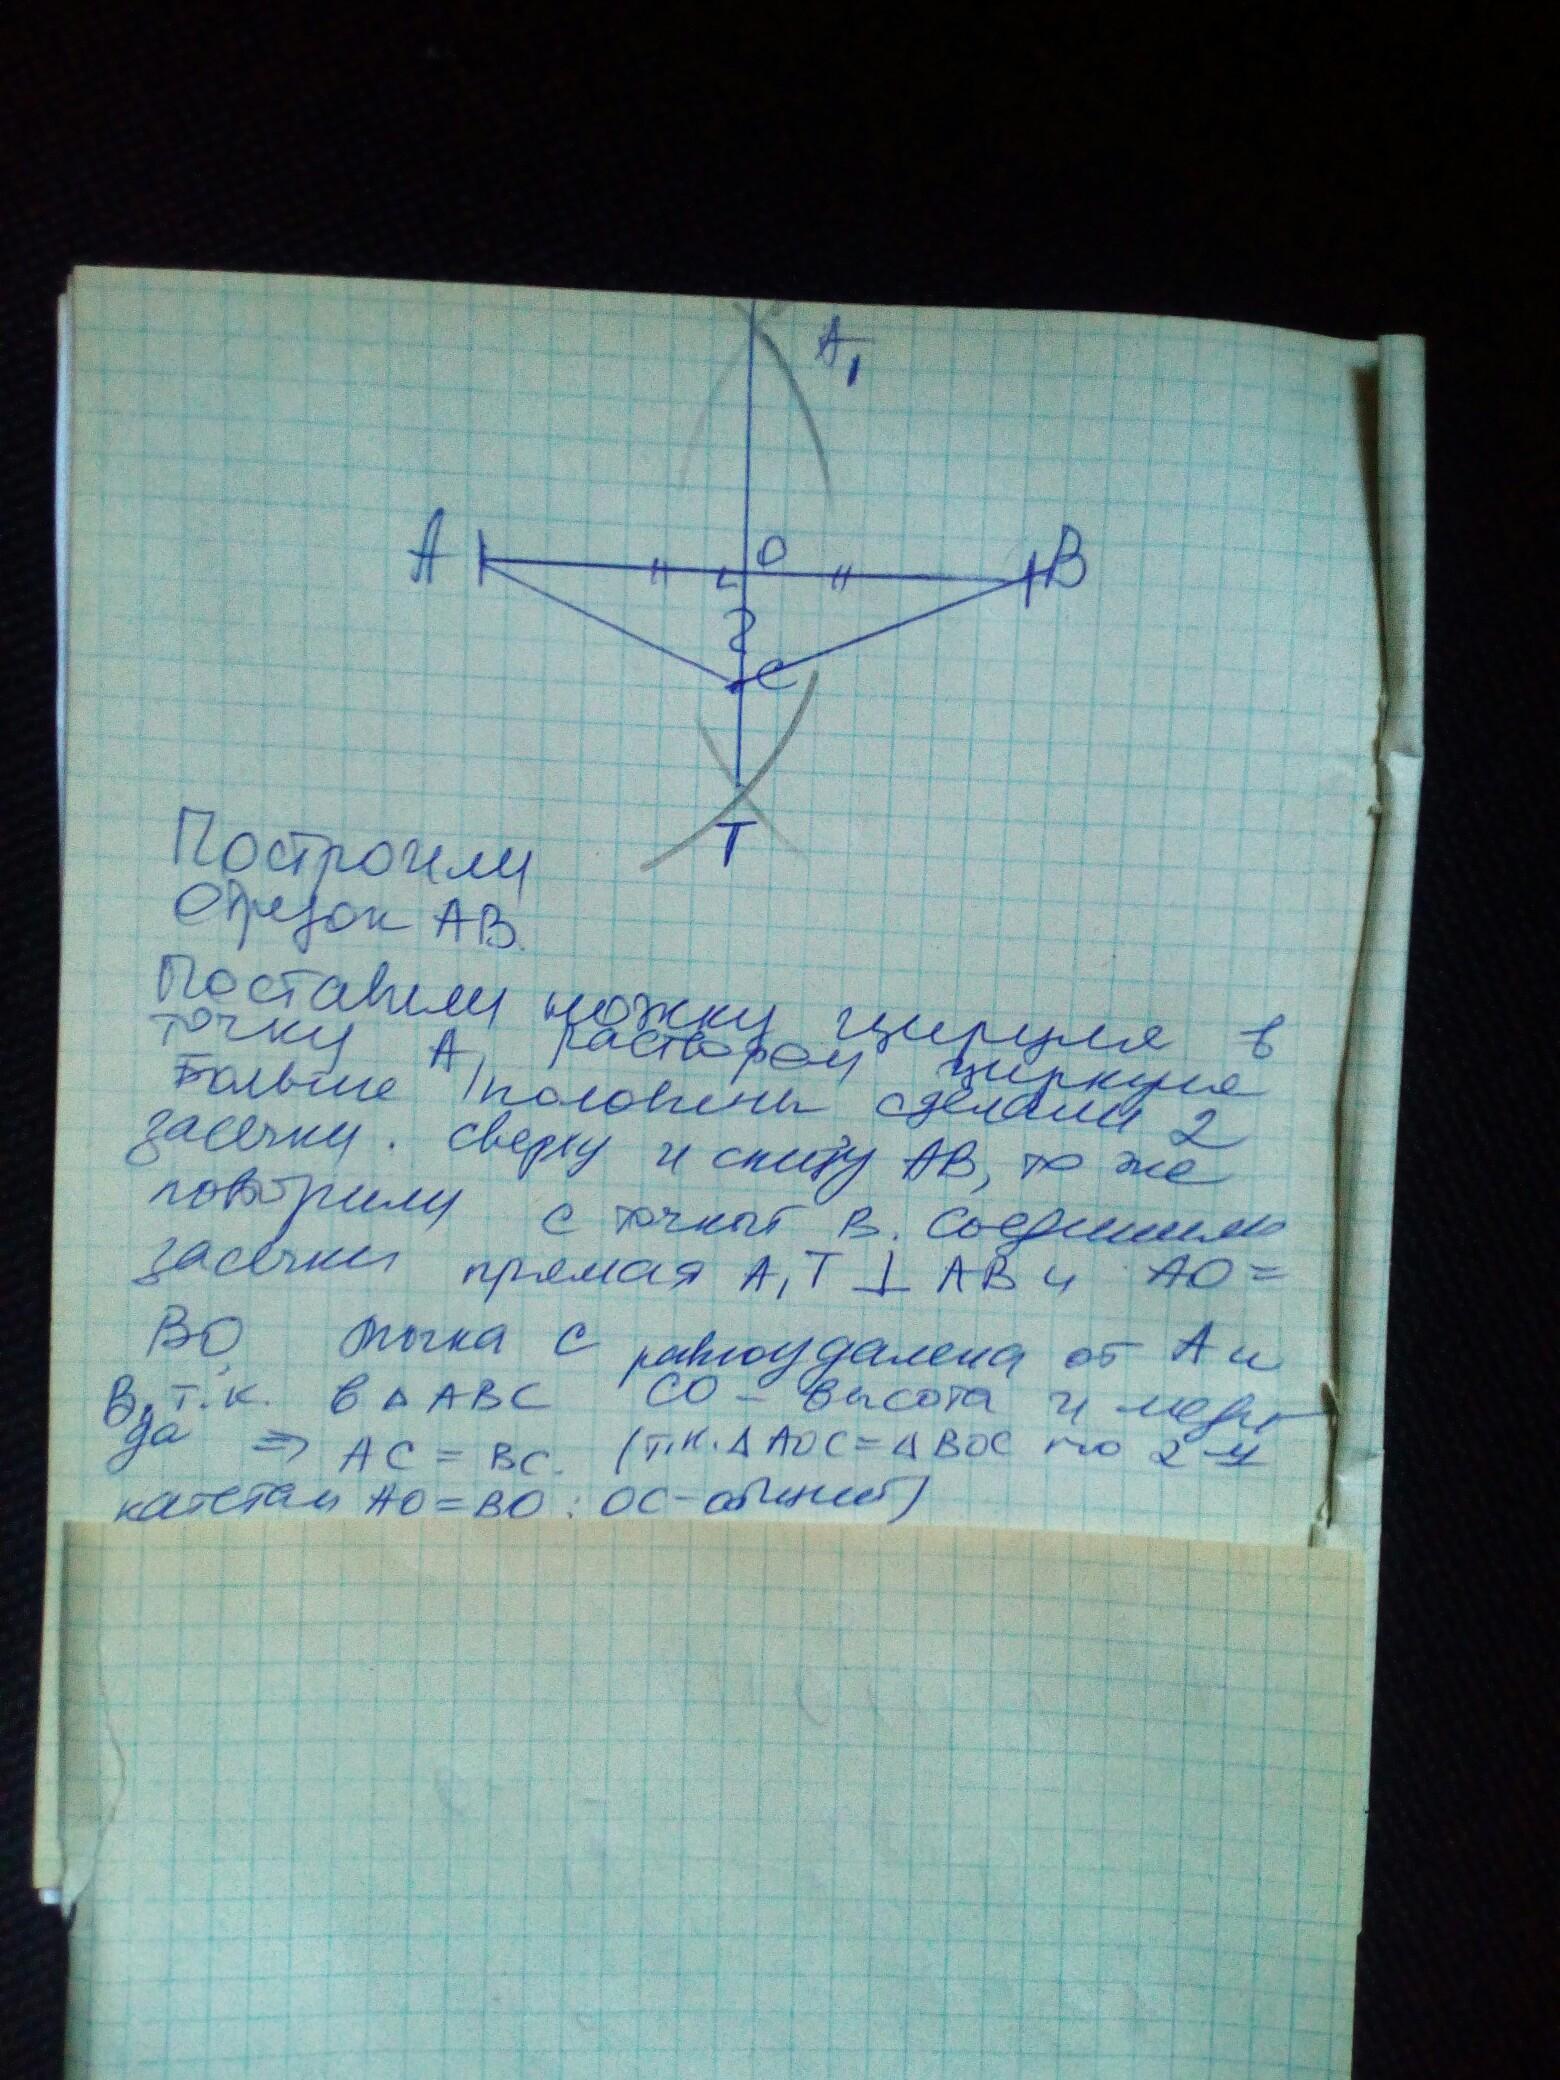 A₁
A
O
B
2
C
T
Построили
Отрезок AB.
Поставили ножку циркуля в
точку A, раствором циркуля
больше половины сделали 2
засечки. сверху и снизу AB, то же
повторили с точкой B. Соединили
засечки прямая A₁T ⊥ AB и AO =
BO. точка C равноудалена от A и
B, т.к. в △ ABC CO - высота и меди
да ⇒ AC = BC. (т.к. △ AOC = △ BOC по 2-м
катетам AO = BO; OC - общий)